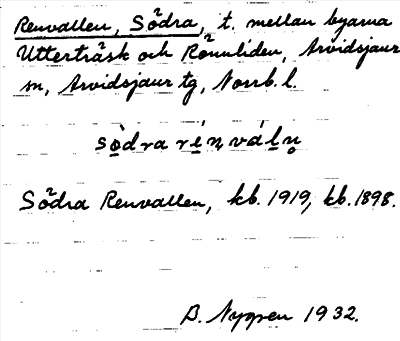 Renvallen, Södra, t. mellan byarna
Utterträsk och Rönnliden, Arvidsjaur
sn, Arvidsjaur tg, Norrb. l.
södra rénváln̥
Södra Renvallen, kb. 1919, kb. 1898.
B. Nygren 1932.